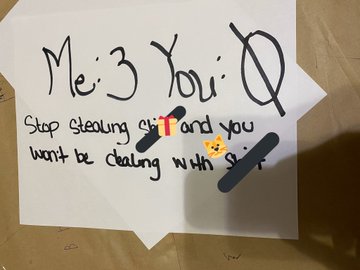 Me: 3 You: 0
Stop stealing and you
won't be dealing with